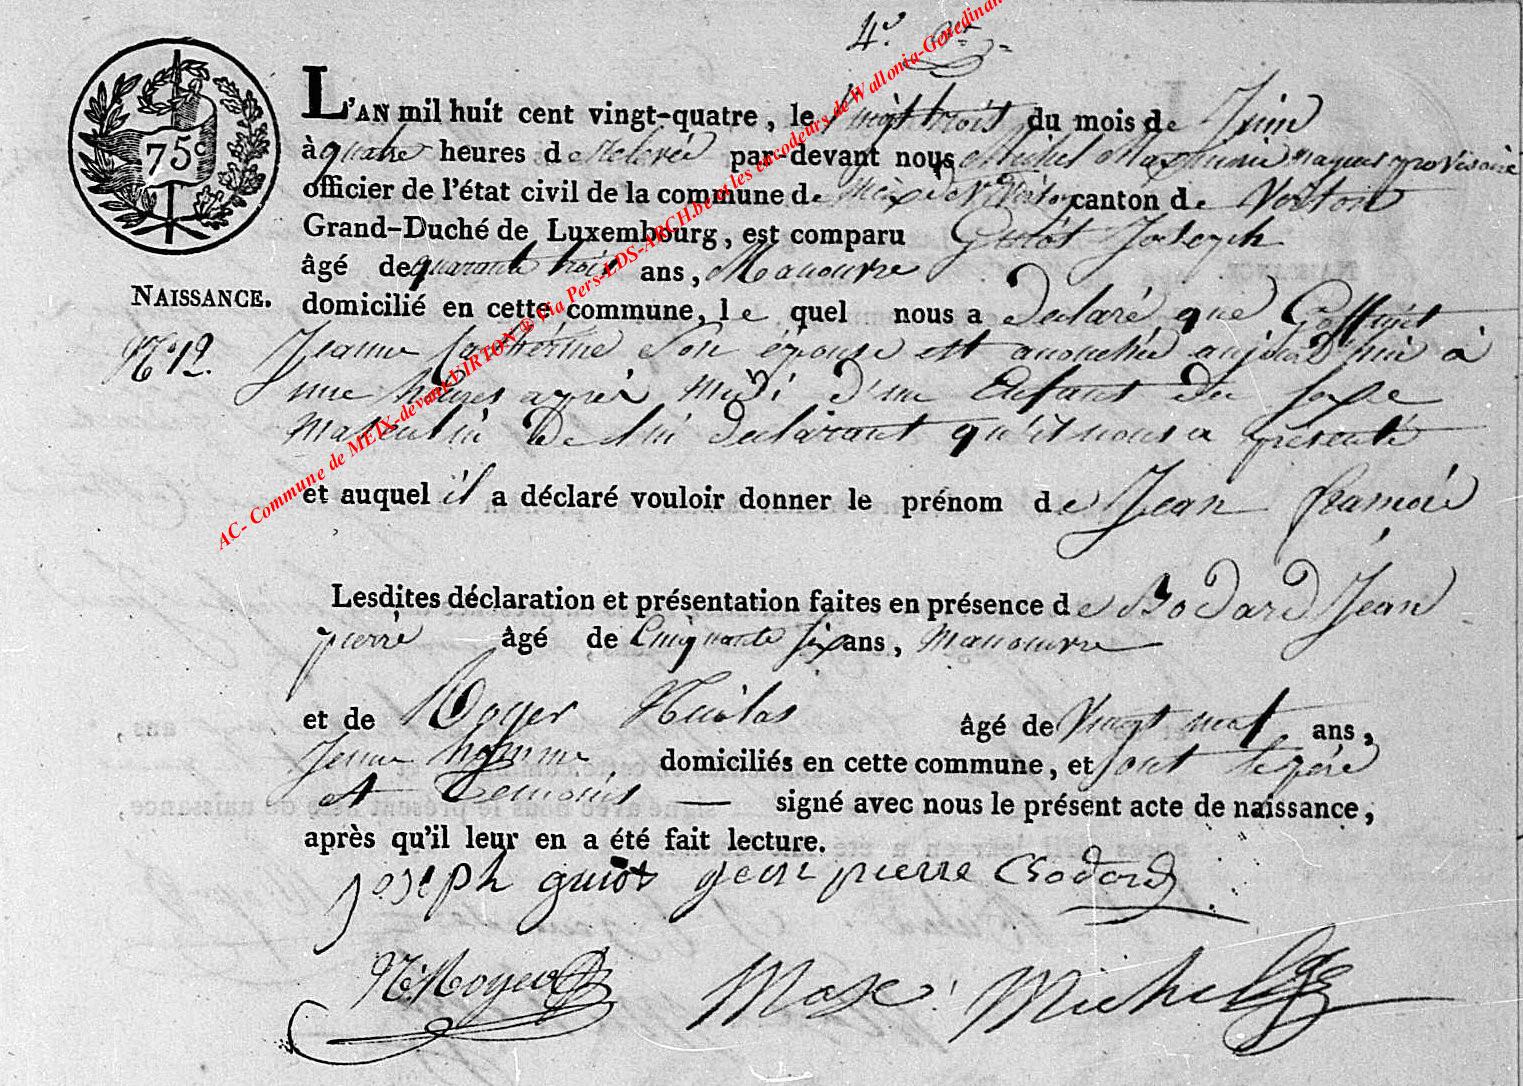 4e
75c
L'AN mil huit cent vingt-quatre, le vingt trois du mois de Juin
à quatre heures de Relevée par-devant nous Michel Maximin mayeur provisoire
officier de l'état civil de la commune de Meix dt Virton canton de Virton
Grand-Duché de Luxembourg, est comparu Guiot Joseph
âgé de quarante trois ans, Manouvre
NAISSANCE.
domicilié en cette commune, le quel nous a declaré que Goffinet
No 12.
Jeanne Catherine Son épouse est accouchée aujourd'hui à
une heures après midi d'un Enfant du sexe
Masculin de lui declarant qu'il nous a presenté
et auquel il a déclaré vouloir donner le prénom de Jean
Lesdites déclaration et présentation faites en présence de Bodard Jean
pierre âgé de Cinquante six ans, manouvre
et de Royer Nicolas âgé de Vingt neuf ans,
Jeune homme domiciliés en cette commune, et ont le père
et temoins signé avec nous le présent acte de naissance,
après qu'il leur en a été fait lecture.
joseph guiot jean pierre Bodard
N: Royer Max: Michel
AC- Commune de MEIX-devant VIRTON ® Via Pers-LDS-ARCH.be et les encodeurs de Wallonia-Genedinan